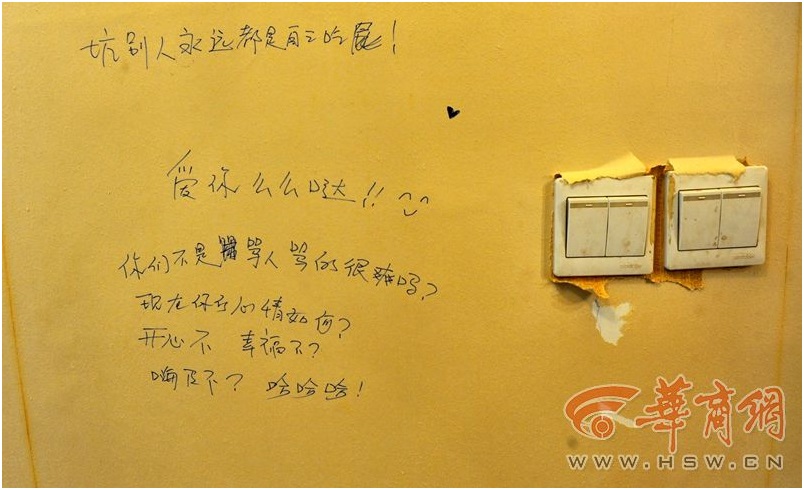 坑别人永远都是自己吃屎!
爱你么么哒!!
你们不是骂人骂的很爽吗?
现在你们心情如何?
开心不 幸福不?
嗨皮不? 哈哈哈!
華商網
WWW.HSW.CN